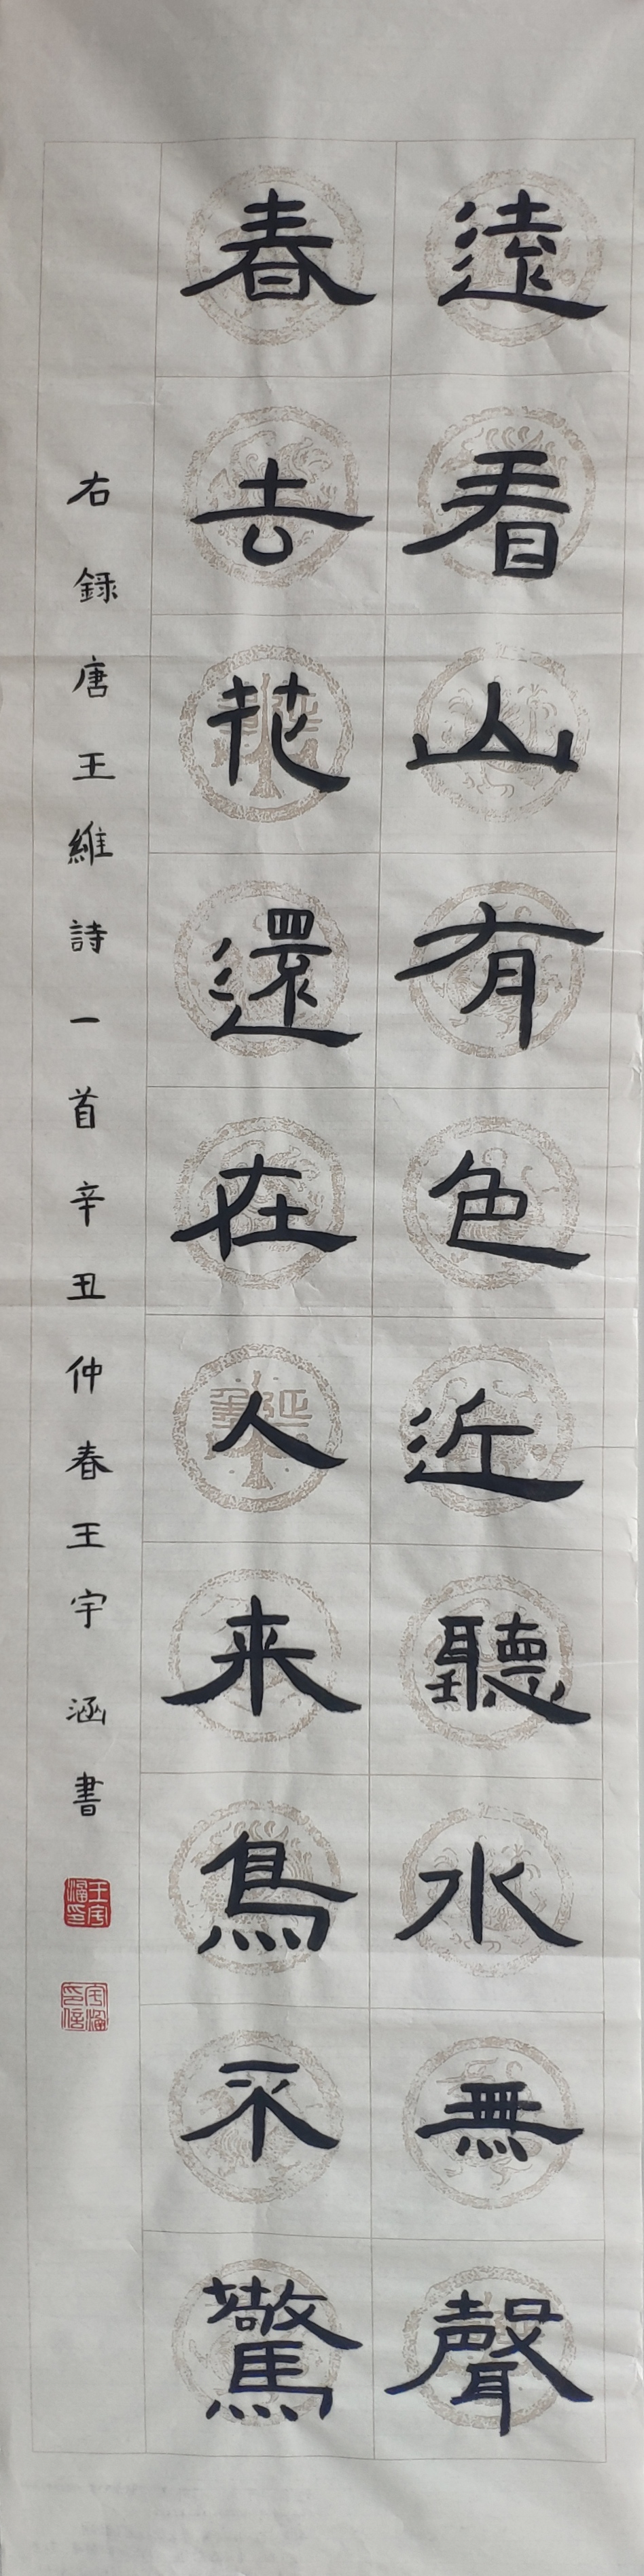 遠看山有色近聽水無聲
春去花還在人来鳥不驚
右録唐王維詩一首辛丑仲春王宇涵書
王宇涵印
宇涵印信